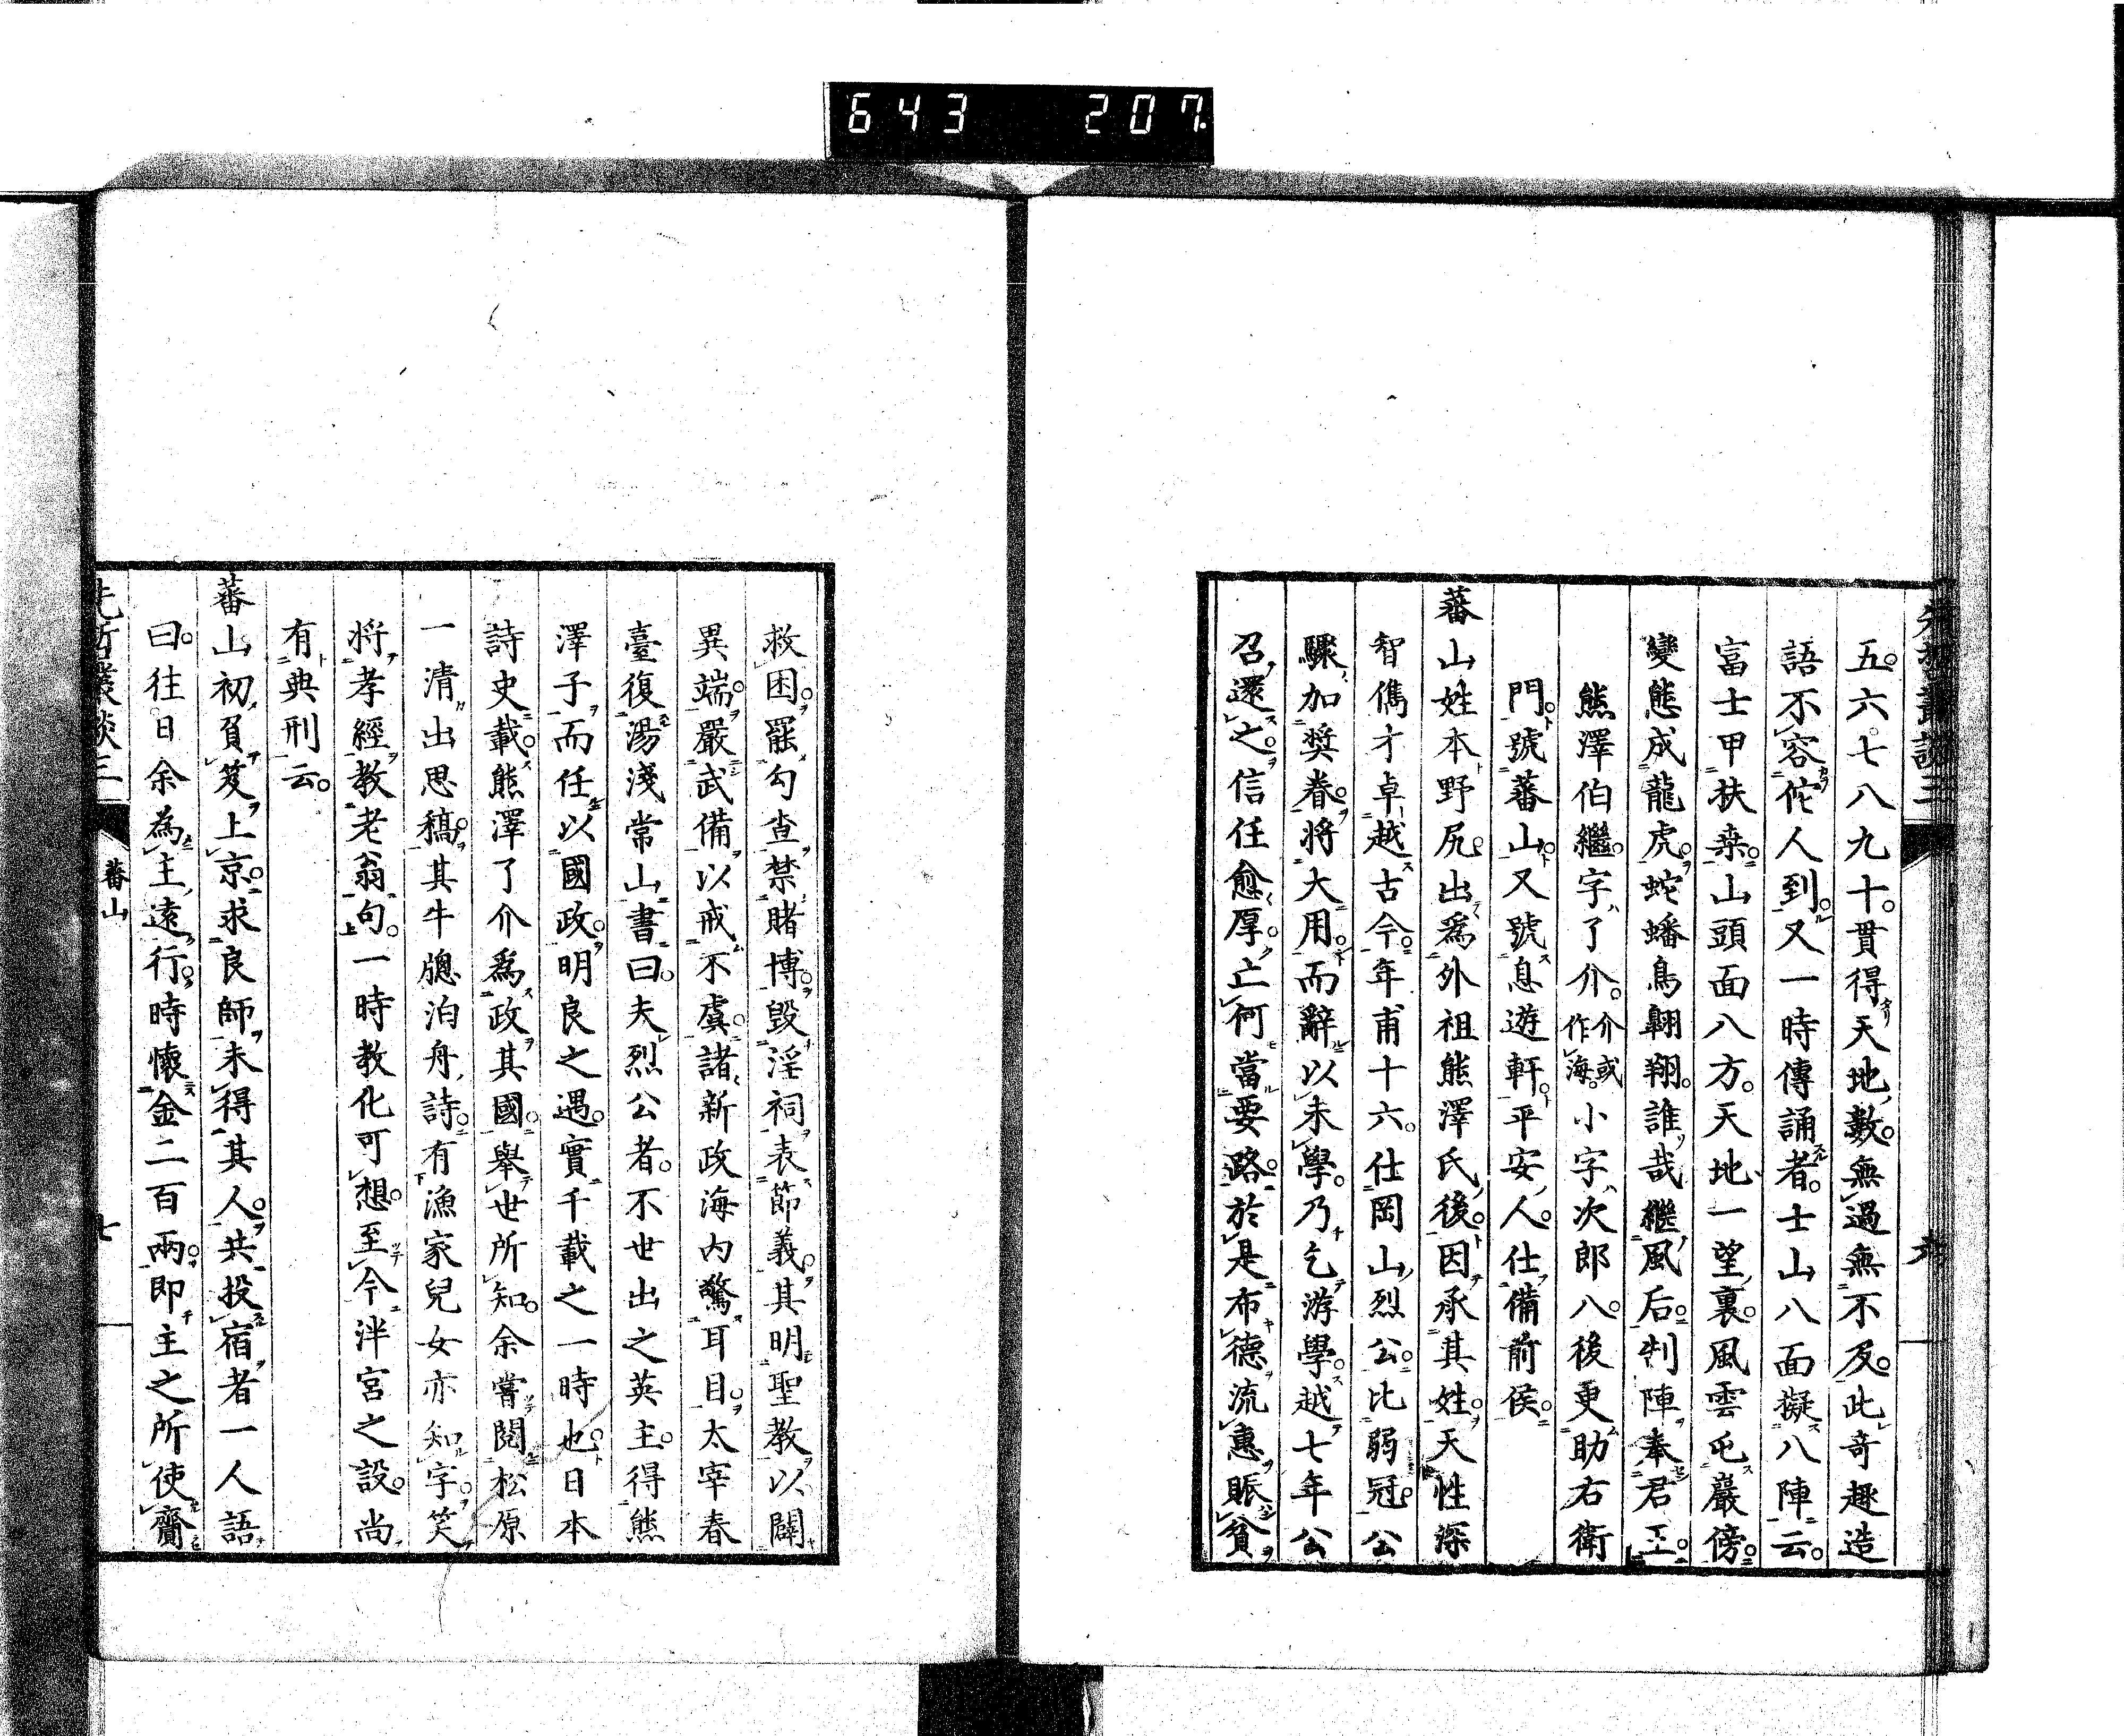 643 207
先哲叢談三
六
五。六。七八九十。貫得天地數。無過無不及。此奇趣造
語不容佗人到。又一時傳誦者。士山八面擬八陣云。
富士甲扶桒。山頭面八方。天地一望裏。風雲屯巖傍。
變態成龍虎。蛇蟠鳥翺翔。誰哉繼風后。判陣奉君王。
熊澤伯繼。字了介。介或作海。小字次郎八。後更助右衛
門。號蕃山。又號息遊軒。平安人。仕備前侯。
蕃山姓本野尻。出爲外祖熊澤氏後。因承其姓。天性深
智儁才卓越古今。年甫十六。仕岡山烈公。比弱冠。公
驟加奬眷。將大用。而辭以未學。乃乞游學。越七年公
召還之。信任愈厚。亡何當要路。於是布德流惠賑貧
救困。罷勾查禁賭博。毀淫祠表節義。其明聖教以闢
異端。嚴武備以戒不虞。諸新政海内驚耳目。太宰春
臺復湯淺常山書曰。夫烈公者。不世出之英主。得熊
澤子而任以國政。明良之遇。實千載之一時也。日本
詩史載。熊澤了介爲政其國。舉世所知。余嘗閱松原
一清出思稿。其牛牕泊舟詩。有漁家兒女亦知字。笑
將孝經教老翁句。一時教化可想。至今泮宮之設。尚
有典刑云。
蕃山初負笈上京。求良師未得其人。共投宿者一人語
曰。往日余為主遠行。時懷金二百兩。即主之所使齎
先哲叢談三
蕃山
七